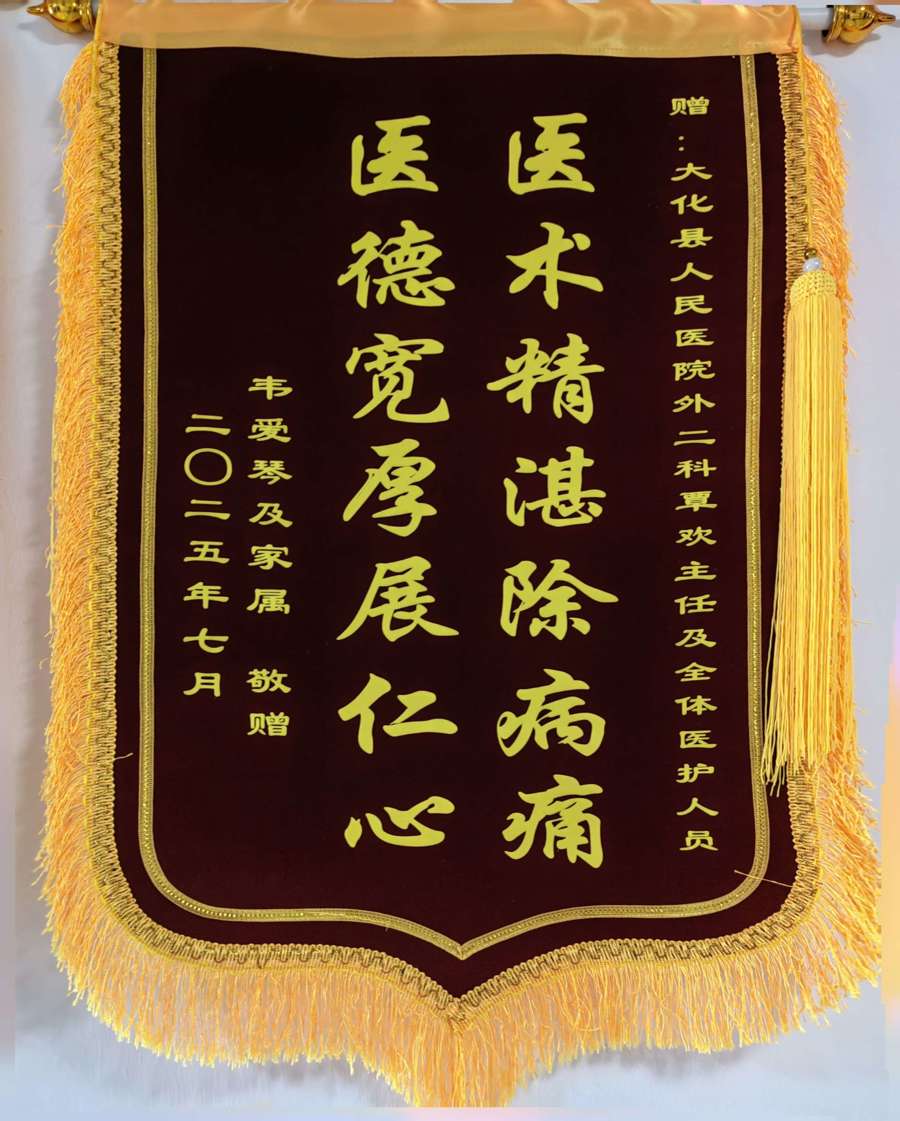 赠：大化县人民医院外二科覃欢主任及全体医护人员
医术精湛除病痛
医德宽厚展仁心
韦爱琴及家属 敬赠
二〇二五年七月